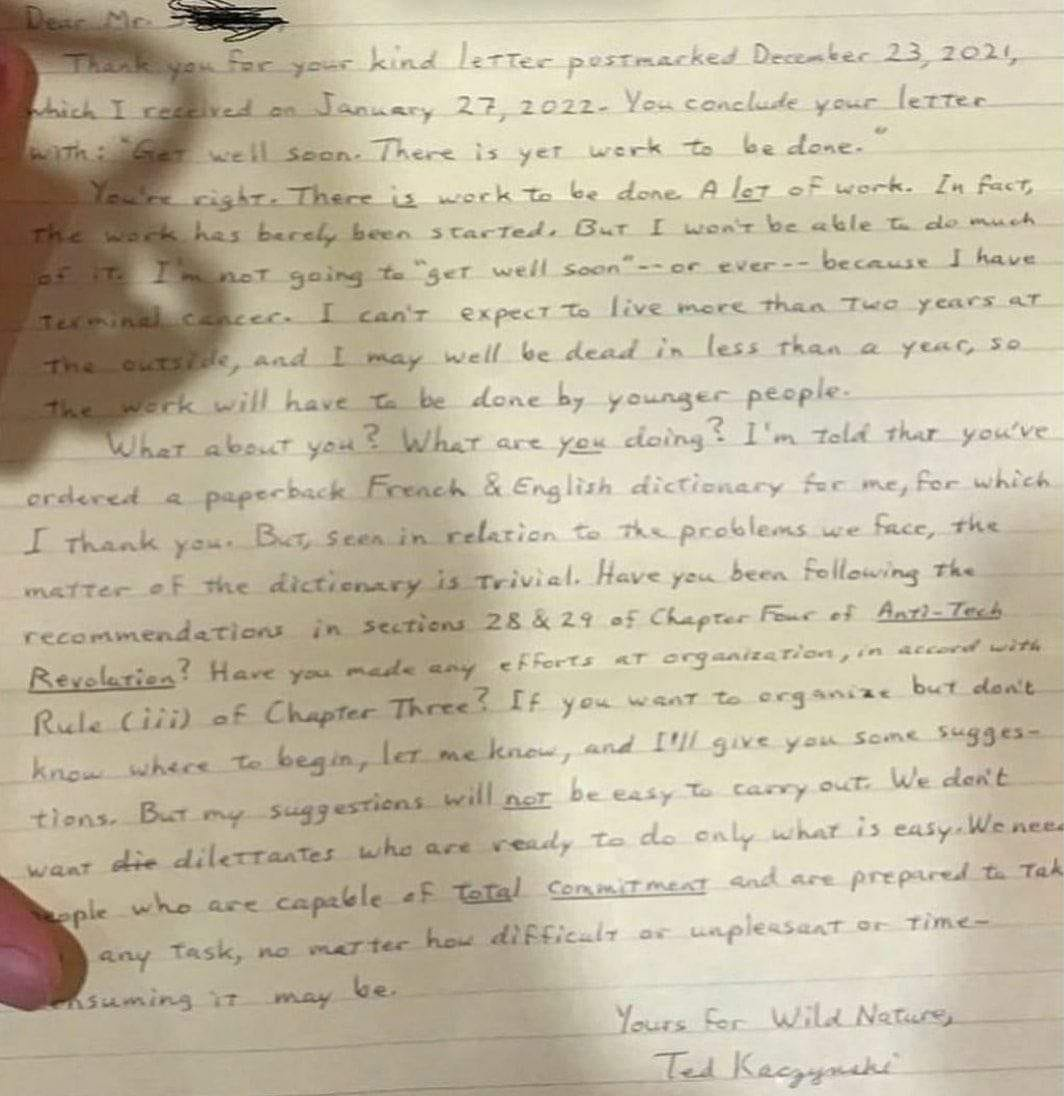 Dear Mr.
Thank you for your kind letter postmarked December 23, 2021,
which I received on January 27, 2022. You conclude your letter
with: "Get well soon. There is yet work to be done."
You're right. There is work to be done. A lot of work. In fact,
the work has barely been started. But I won't be able to do much
of it. I'm not going to "get well soon"--or ever--because I have
terminal cancer. I can't expect to live more than two years at
the outside, and I may well be dead in less than a year, so
the work will have to be done by younger people.
What about you? What are you doing? I'm told that you've
ordered a paperback French & English dictionary for me, for which
I thank you. But, seen in relation to the problems we face, the
matter of the dictionary is trivial. Have you been following the
recommendations in sections 28 & 29 of Chapter Four of Anti-Tech
Revolution? Have you made any efforts at organization, in accord with
Rule (iii) of Chapter Three? If you want to organize but don't
know where to begin, let me know, and I'll give you some sugges-
tions. But my suggestions will not be easy to carry out. We don't
want die dilettantes who are ready to do only what is easy. We nee
eople who are capable of total commitment and are prepared to tak
any task, no matter how difficult or unpleasant or time-
nsuming it may be.
Yours for Wild Nature,
Ted Kaczynski